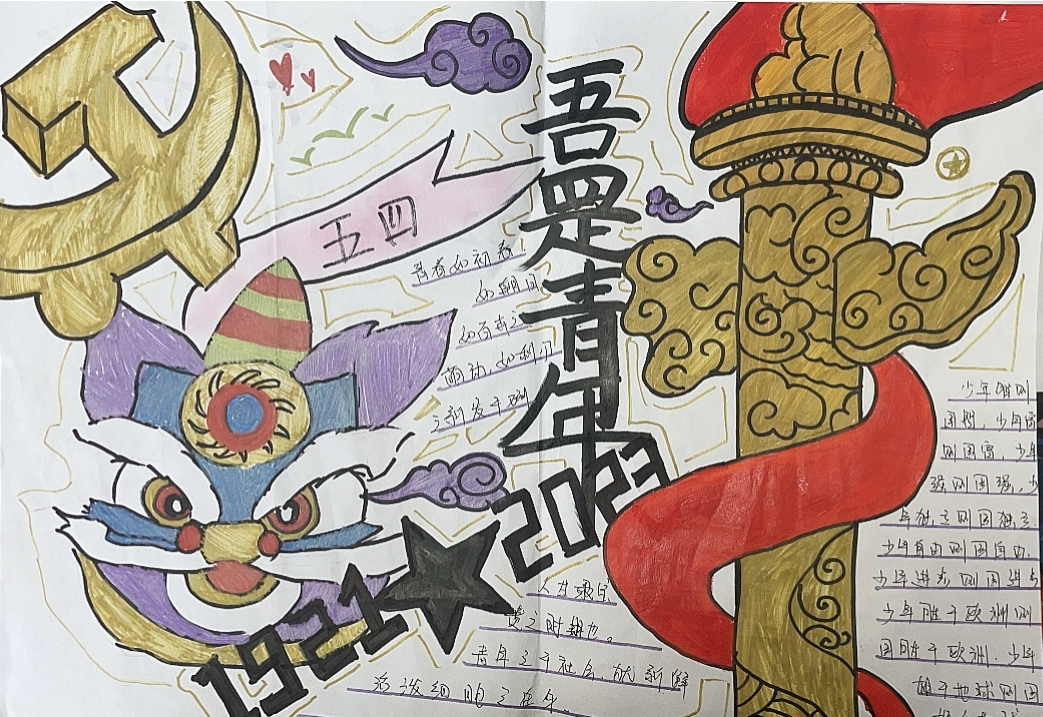 吾辈是青年
五四
青春如初春，
如朝日
如百卉之
萌动，如利刃
之新发于硎
1921★2023
人生最宝
贵之时期也。
青年之于社会，犹新鲜
活泼细胞之在身。
少年智则
国智，少年富
则国富，少年
强则国强，少
年独立则国独立
少年自由则国自由，
少年进步则国进步
少年胜于欧洲则
国胜于欧洲，少年
雄于地球则国